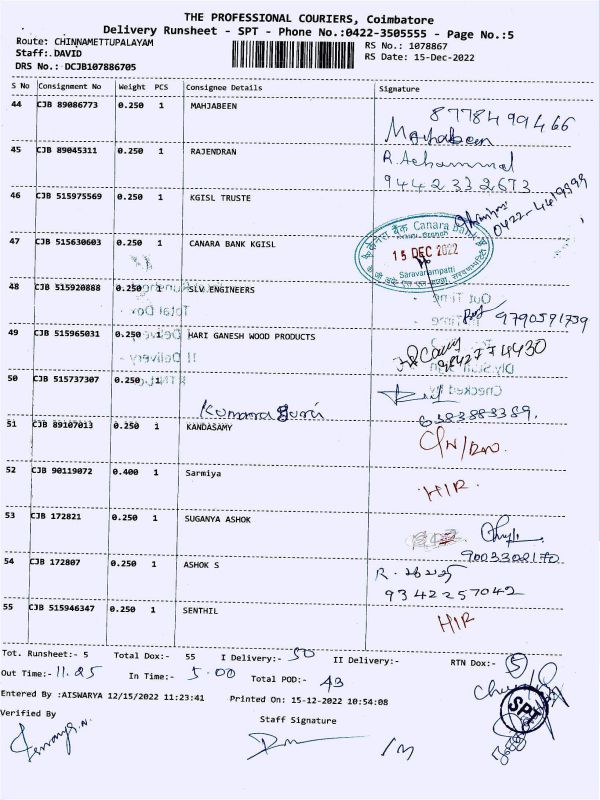 THE PROFESSIONAL COURIERS, Coimbatore
Delivery Runsheet - SPT - Phone No.:0422-3505555 - Page No.:5
Route: CHINNAMETTUPALAYAM
RS No.: 1078867
Staff:.DAVID
RS Date: 15-Dec-2022
DRS No.: DCJB107886705
S No Consignment No Weight PCS Consignee Details Signature
44 CJB 89086773 0.250 1 MAHJABEEN 8778499466
Mahjabeen
45 CJB 89045311 0.250 1 RAJENDRAN R.Achammal
9442332673
46 CJB 515975569 0.250 1 KGISL TRUSTE 0422-4419999
47 CJB 515630603 0.250 1 CANARA BANK KGISL
केनरा बैंक Canara Bank
15 DEC 2022
Saravanampatti
48 CJB 515920888 0.250 SLV ENGINEERS
9790591739
49 CJB 515965031 0.250 1 HARI GANESH WOOD PRODUCTS
50 CJB 515737307 0.250 1
Kumara Guru 6383883389.
51 CJB 89107013 0.250 1 KANDASAMY
52 CJB 90119072 0.400 1 Sarmiya HIR.
53 CJB 172821 0.250 1 SUGANYA ASHOK
9003302170
54 CJB 172807 0.250 1 ASHOK S
9342257042
55 CJB 515946347 0.250 1 SENTHIL HIR
Tot. Runsheet:- 5 Total Dox:- 55 I Delivery:- 50 II Delivery:- RTN Dox:- 5
Out Time:- 11.25 In Time:- 5.00 Total POD:- 43
Entered By :AISWARYA 12/15/2022 11:23:41 Printed On: 15-12-2022 10:54:08
SPT
Verified By Staff Signature